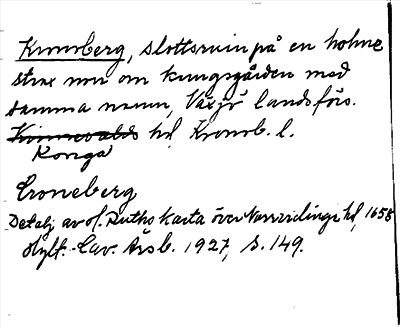 Kronoberg, slottsruin på en holme
strax norr om kungsgården med
samma namn, Växjö landsförs.
Kinnevalds hd Kronob. l.
Konga
Croneberg
Detalj av J. Ruths karta över Norrvidinge hd, 1658
Hylt.-Cav. Årsb. 1927, s. 149.